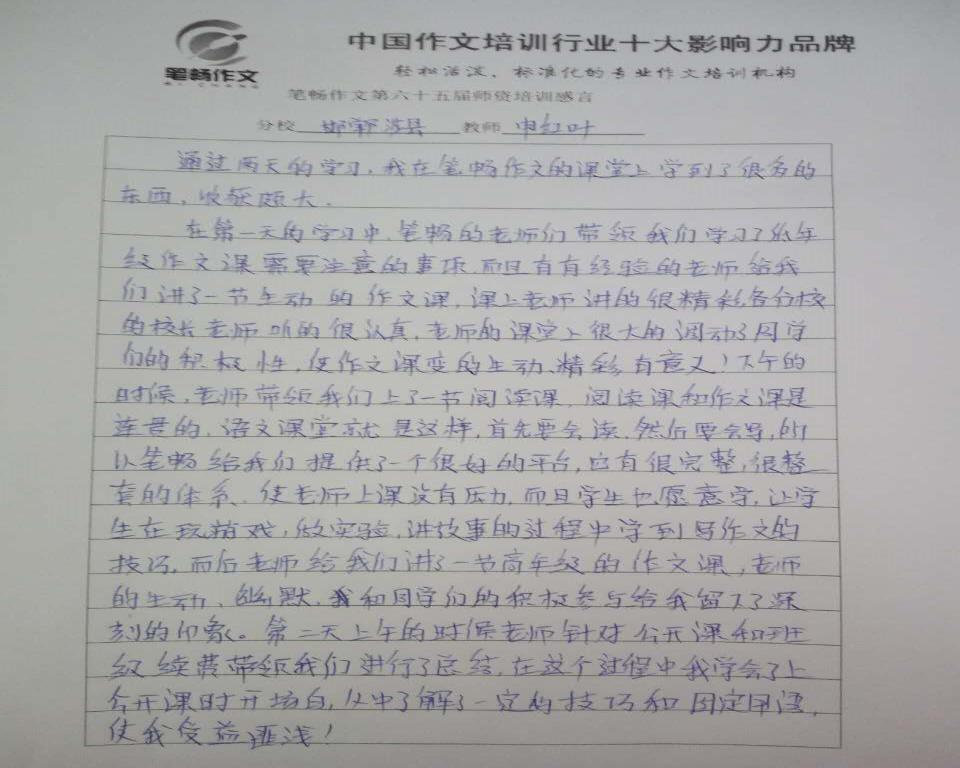 中国作文培训行业十大影响力品牌
笔畅作文
BI CHANG
轻松活泼、标准化的专业作文培训机构
笔畅作文第六十五届师资培训感言
分校 邯郸涉县 教师 申红叶
通过两天的学习,我在笔畅作文的课堂上学到了很多的
东西,收获颇大.
在第一天的学习中,笔畅的老师们带领我们学习了低年
级作文课需要注意的事项,而且有有经验的老师给我
们讲了一节生动的作文课,课上老师讲的很精彩,各分校
的校长老师听的很认真,老师的课堂上很大的调动了同学
们的积极性,使作文课变的生动、精彩、有意义!下午的
时候,老师带领我们上了一节阅读课,阅读课和作文课是
连贯的,语文课堂就是这样,首先要会读,然后要会写,所
以笔畅给我们提供了一个很好的平台,它有很完整,很整
套的体系、使老师上课没有压力,而且学生也愿意学,让学
生在玩游戏,做实验,讲故事的过程中学到写作文的
技巧,而后老师给我们讲了一节高年级的作文课,老师
的生动、幽默,我和同学们的积极参与给我留下了深
刻的印象。第二天上午的时候老师针对公开课和班
级续费带领我们进行了总结,在这个过程中我学会了上
公开课时开场白,从中了解了一定的技巧和固定用语,
使我受益匪浅!